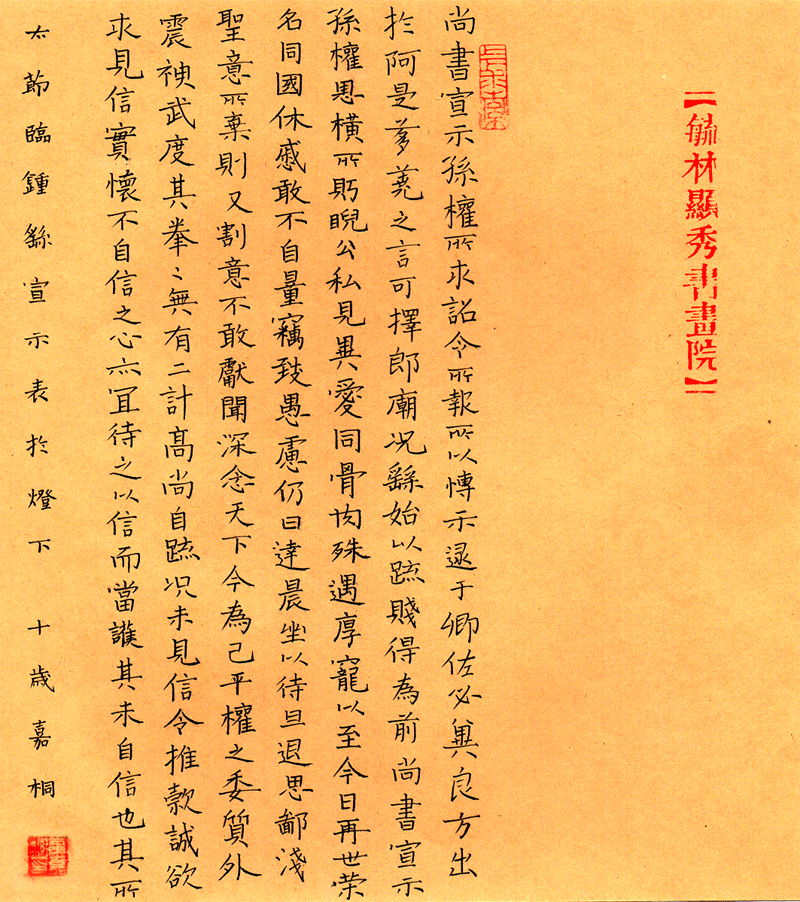 【毓林顯秀書畫院】
尚書宣示孫權所求詔令所報所以愽示逯于卿佐必兾良方出
於阿是芻蕘之言可擇郎廟况繇始以疏賤得為前尚書宣示
孫權恩橫所眄睨公私見異愛同骨肉殊遇厚寵以至今日再世荣
名同國休慼敢不自量竊致愚慮仍日達晨坐以待旦退思鄙淺
聖意所棄則又割意不敢獻聞深念天下今為已平權之委質外
震神武度其拳〻無有二計高尚自疏况未見信今推款誠欲
求見信實懷不自信之心亦宜待之以信而當護其未自信也其所
節臨鍾繇宣示表於燈下 十歲嘉桐